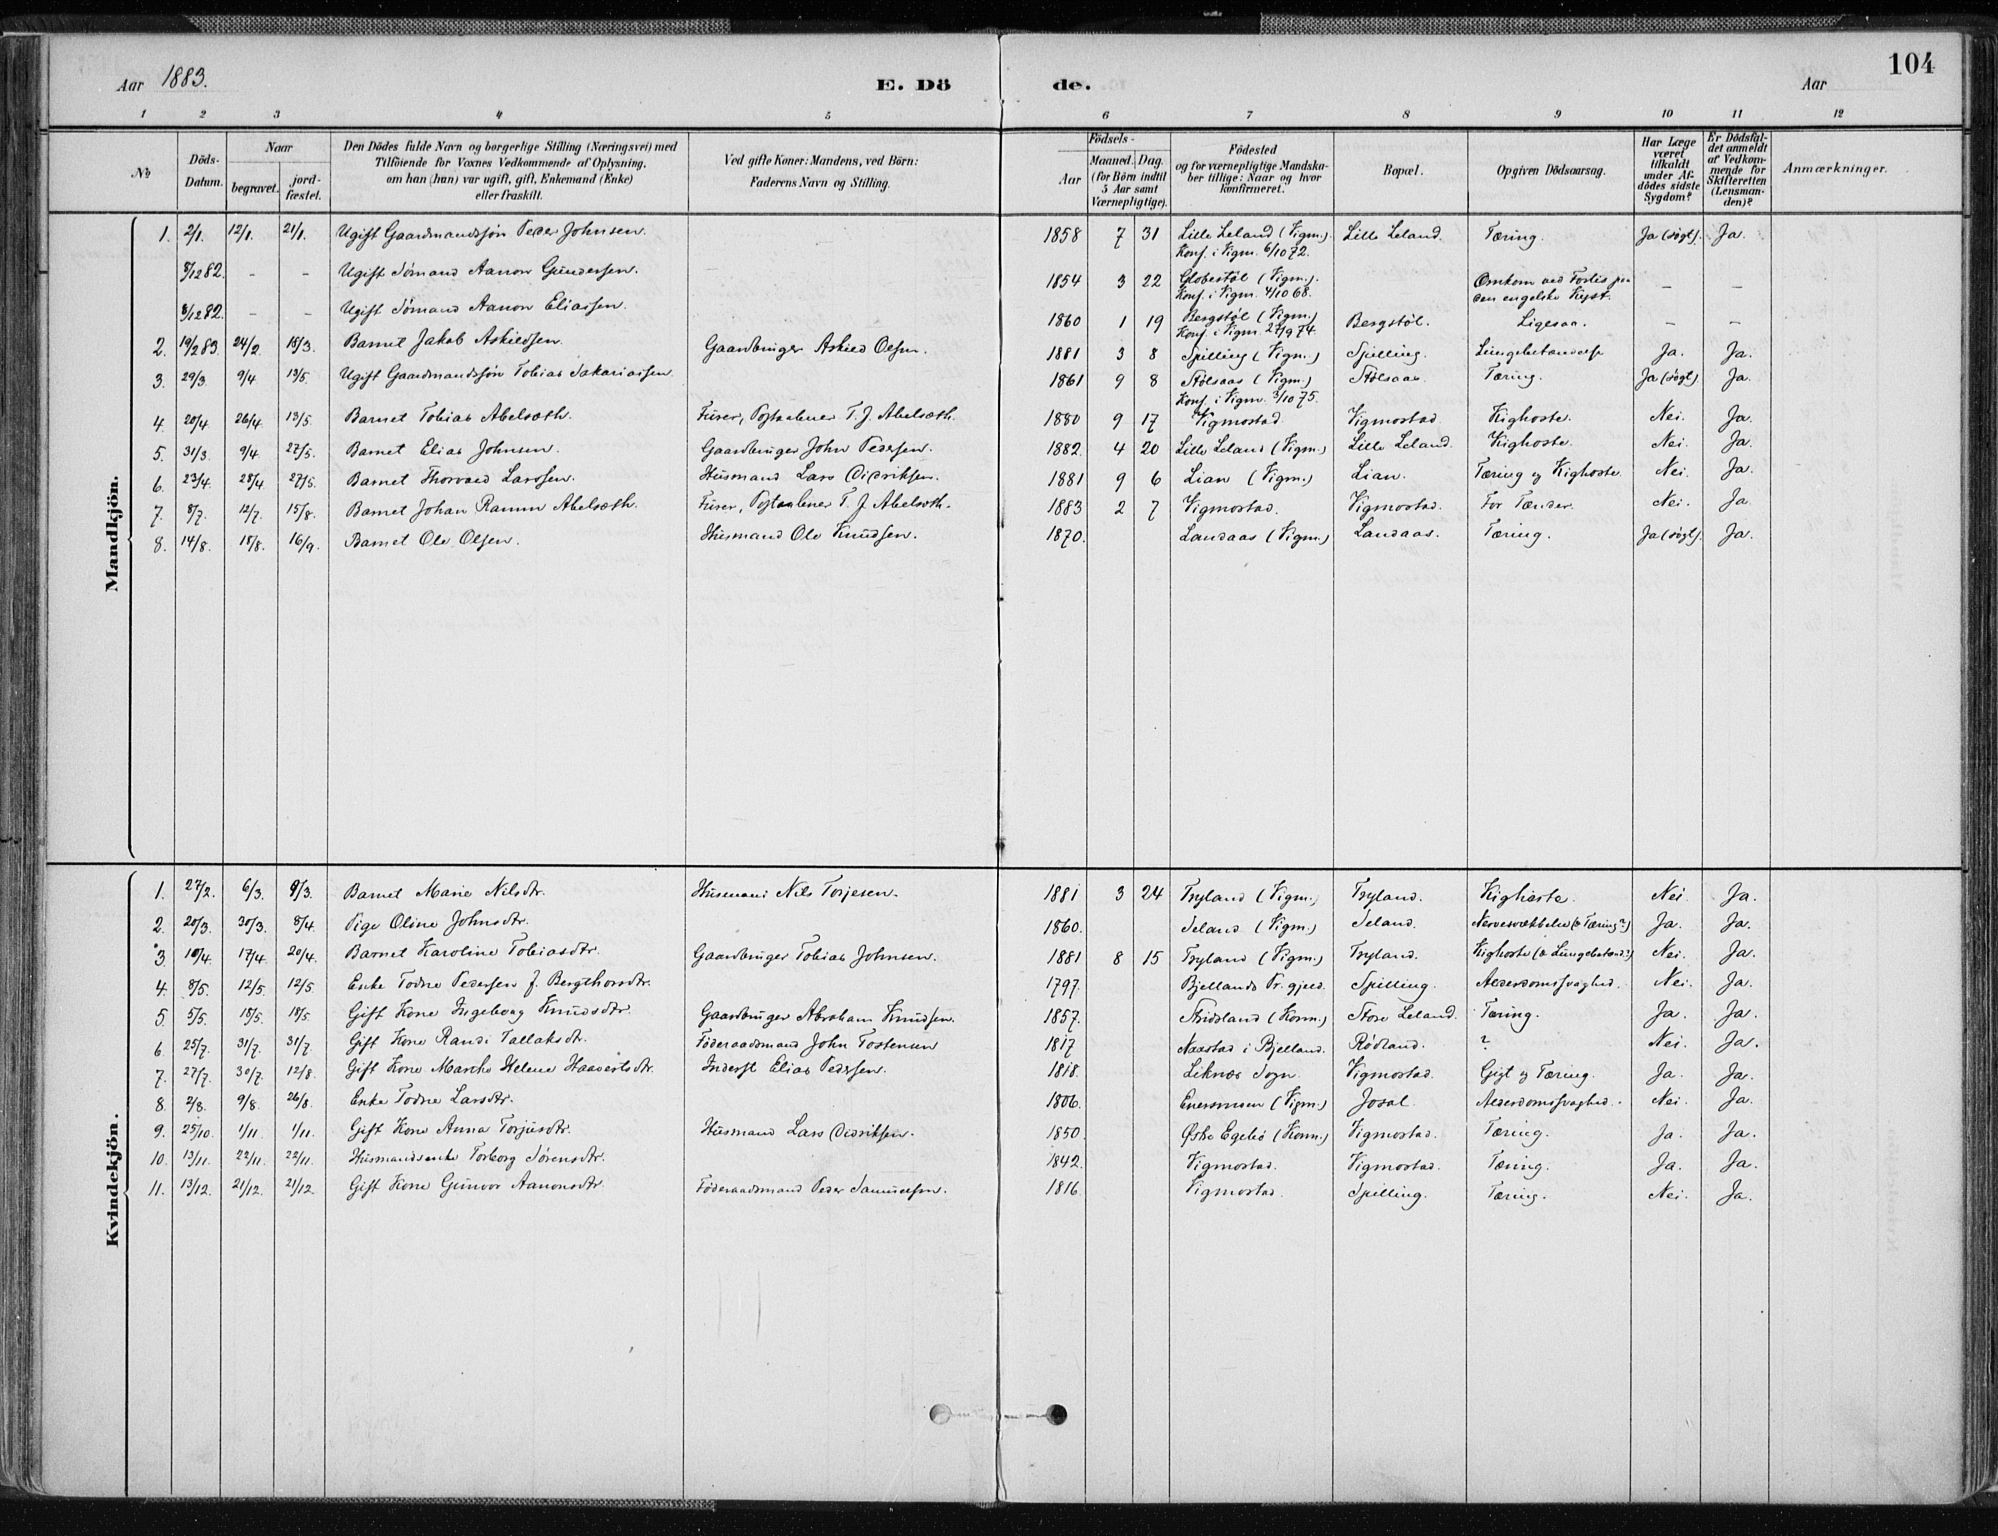 Aar 1883. E. Dö de. Aar 104
1 2 3 4 5 6 7 8 9 10 11 12
No
Döds-Datum.
Naar
begravet.
jord-fæstet.
Den Dödes fulde Navn og borgerlige Stilling (Næringsvei) med
Tilföiende for Voxnes Vedkommende af Oplysning,
om han (hun) var ugift, gift, Enkemand (Enke)
eller fraskilt.
Ved gifte Koner: Mandens, ved Börn:
Faderens Navn og Stilling.
Födsels-
Aar
Maaned. Dag.
(for Börn indtil
5 Aar samt
Værnepligtige).
Födested
og for værnepligtige Mandska-
ber tillige: Naar og hvor
konfirmeret.
Bopæl.
Opgiven Dödsaarsag.
Har Læge
været
tilkaldt
under Af-
dödes sidste
Sygdom?
Er Dödsfal-
det anmeldt
af Vedkom-
mende for
Skifteretten
(Lensman-
den)?
Anmærkninger.
Mandkjön.
1. 2/1. 12/1. 21/1. Ugift Gaardmandssøn Peder Johnsen. 1858 7 31 Lille Leland (Vigm.) Lille Leland. Tæring. Ja (søgt). Ja.
Konf. i Vigm. 6/10 72.
8/12 82. - - Ugift Sømand Aanon Gundersen. 1854 3 22 Globestøl (Vigm.) Omkom ved Forlis paa - -
Konf. i Vigm. 4/10 68. den engelske Kyst.
8/12 82. - - Ugift Sømand Aanon Eliassen. 1860 1 19 Bergstøl (Vigm.) Bergstøl. Ligesaa. - -
Konf. i Vigm. 27/9 74.
2. 19/2 83. 24/2. 18/3. Barnet Jakob Askildsen. Gaardbruger Askild Olsen. 1881 3 8 Spilling (Vigm.) Spilling. Lungebetændelse Ja. Ja.
3. 29/3. 9/4. 13/5. Ugift Gaardmandssøn Tobias Sakariassen. 1861 9 8 Stølsaas (Vigm.) Stølsaas. Tæring. Ja (søgt). Ja.
Konf. i Vigm. 3/10 75.
4. 20/4. 26/4. 13/5. Barnet Tobias Abelsæth. Furer, Postaabner T. J. Abelsæth. 1880 9 17 Vigmostad. Vigmostad. Kighoste. Nei. Ja.
5. 31/3. 9/4. 27/5. Barnet Elias Johnsen. Gaardbruger John Pedersen. 1882. 4 20 Lille Leland (Vigm.) Lille Leland. Kighoste. Nei. Ja.
6. 23/4. 28/4. 27/5. Barnet Thorvald Larssen. Husmand Lars Didriksen. 1881 9 6 Lian (Vigm.) Lian. Tæring og Kighoste Nei. Ja.
7. 8/7. 12/7. 15/8. Barnet Johan Ramm Abelsæth. Furer, Postaabner T. J. Abelsæth. 1883 2 7 Vigmostad. Vigmostad. For Tænder. Nei. Ja
8. 14/8. 18/8. 16/9. Barnet Ole Olsen. Husmand Ole Knudsen. 1870. Landaas (Vigm.) Landaas. Tæring. Ja (søgt). Ja.
Kvindekjön.
1. 27/2. 6/3. 9/3. Barnet Marie Nilsdtr. Husmand Nils Torjesen. 1881 3 24 Tryland (Vigm.) Tryland. Kighoste. Nei Ja.
2. 20/3. 30/3. 8/4. Pige Oline Johnsdtr. 1860. Seland (Vigm.) Seland. Nervesvækkelse (& Tæring?) Ja. Ja.
3. 10/4. 17/4. 20/4. Barnet Karoline Tobiasdtr. Gaardbruger Tobias Johnsen. 1881 8 15 Tryland (Vigm.) Tryland. Kighoste (& Lungebetænd?) Nei. Ja.
4. 8/5. 12/5. 12/5. Enke Todne Pedersen f. Bergthorsdtr. 1797. Bjellands Pr.gjeld. Spilling. Alderdomssvaghed. Nei. Ja.
5. 5/5. 18/5. 18/5. Gift Kone Ingeborg Knudsdtr. Gaardbruger Abraham Knudsen. 1857. Stridsland (Konm.) Store Leland. Tæring. Ja. Ja.
6. 25/7. 31/7. 31/7. Gift Kone Randi Tallaksdtr. Føderaadsmand John Tostensen 1817 Naastad i Bjelland. Rødland. ? Nei. Ja.
7. 27/7. 30/7. 12/8. Gift Kone Marthe Helene Haavertsdtr. Inderst Elias Pedersen. 1818. Liknæs Sogn. Vigmostad. Gigt og Tæring. Ja. Ja.
8. 2/8. 9/8. 26/8. Enke Todne Larsdtr. 1806. (Vigm.) Josal. Alderdomssvaghed. Nei. Ja.
9. 25/10. 1/11. 1/11. Gift Kone Anna Torjusdtr. Husmand Lars Didriksen. 1850. (Konm.) Vigmostad. Tæring. Ja. Ja.
10. 13/11. 22/11. 22/11. Husmandsenke Torborg Sørensdtr. 1842. Vigmostad. Vigmostad. Tæring. Ja. Ja.
11. 13/12. 21/12. 21/12. Gift Kone Gunvor Aanonsdtr. Føderaadsmand Peder Samuelsen. 1816. Vigmostad. Spilling. Tæring. Nei. Ja.